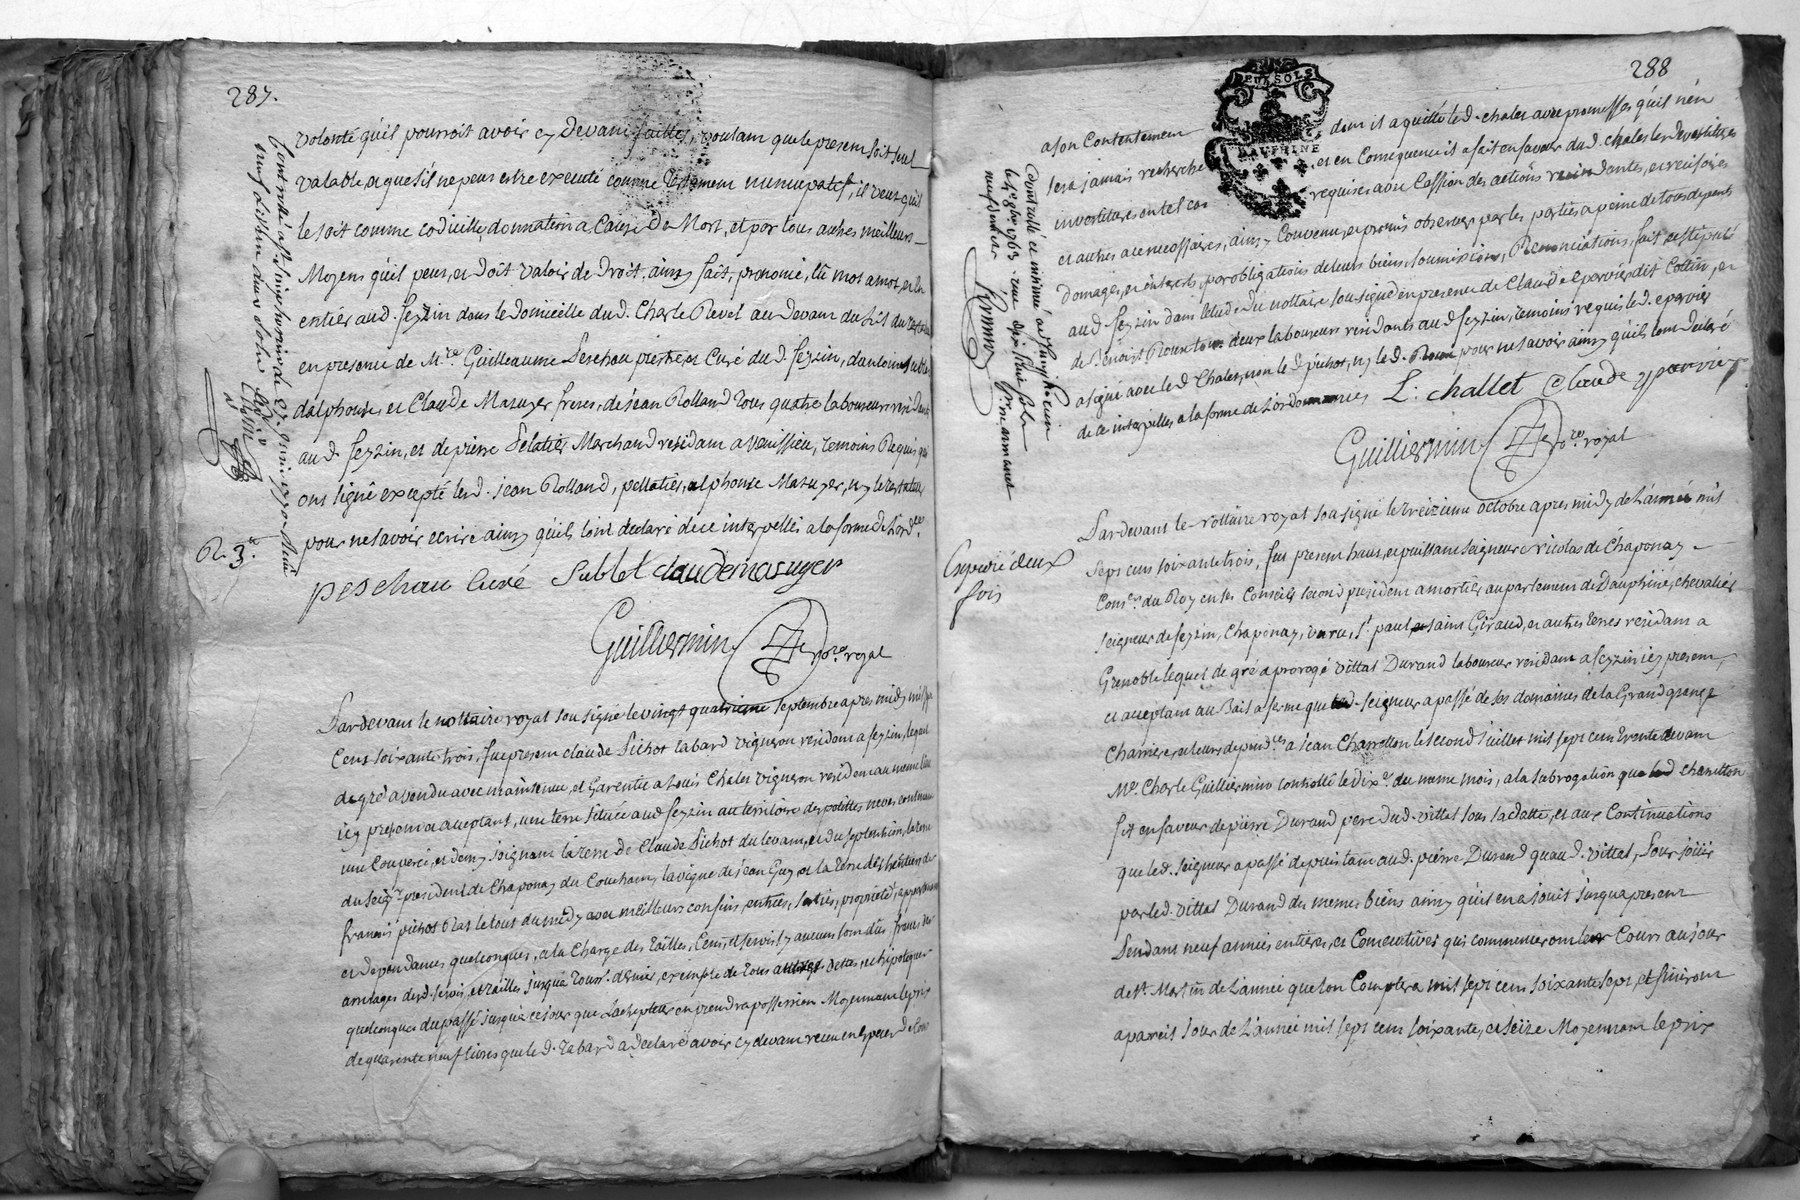 287.
volonté qu'il pourroit avoir cy devant faittes, voulant que le present soit seul
valable, et que s'il ne peut estre executé comme Testament nuncupatif, il veut qu'il
le soit comme codicille, donnation a Cause de Mort, et par tous autres meilleurs
Moyens qu'il peut, et doit valoir de Droit. ainsy fait, prononcé, lû mot a mot, et en
entier aud. feyzin dans le domicille dud. Charle Revel au devant du Lit du
en presence de Mre. Guilleaume Peschau prestre et Curé dud. feyzin,
d'alphonse, et Claude Mazuyer freres, de jean Rolland Tous quatre laboureurs
aud. feyzin, et de pierre Pelatier Marchand residant a venissieu, temoins Requis qui
ont signé excepté led. jean Rolland, pellatier, alphonse Mazuyer, ny le testateur
pour ne savoir ecrire ainsy qu'ils l'ont declaré de ce interpellés a la forme de l'ordce.
peschau curé Sublet claude masuyer
Guilliermin nore. royal
R. 3.
Pardevant le nottaire royal sousigné le vingt quatrieme septembre apres midy mil sept
Cent soixante trois, fut present claude Pichot Labard vigneron residant a feyzin, lequel
de gré a vendu avec maintenue, et Garentie a Louis Chalet vigneron residant au meme lieu
icy present et acceptant, une terre située aud. feyzin au territoire des petittes
une Couperée, et demy joignant la terre de Claude Pichot du levant, et du septentrion, la terre
du Seigr. president de Chaponay du Couchant, la vigne de jean Guy et la terre des heritiers de
francois pichot Rat le tout du midy avec meilleurs confins, entrées, sorties, proprietés, appartenances
et dependances quelconques, a la Charge des Tailles, Cens, et servis sy aucuns sont dûs francs des
arrerages desd. servis, et tailles jusqu'a Toussts. dernier, exempte de tous autres dettes, et hipoteques
quelconques du passé jusqu'a ce jour que L'achepteur en prendra possession Moyennant le prix
de quarente neuf livres que led. Labard a declaré avoir cy devant receu en Especes de cours
288
DEUX SOLS
DAUPHINE
a son Contentement dont il a quitté led. chalet avec promesses qu'il n'en
sera jamais recherché et en Consequence il a fait en faveur dud. chalet les devestitures
investitures en tel cas requises avec Cession des actions rescindantes, et rescisoires
et autres a ce necessaires, ainsy Convenu, et promis observer par les parties a peine de tous depents
domages, et interets par obligations de leurs biens, soumissions, Renonciations, fait, et stipulé
aud. feyzin dans l'etude du nottaire sousigné en presence de Claude Eparvier dit Collin, et
de Benoist Roux tous deux laboureurs residants aud. feyzin, temoins requis led. eparvier
a signé avec led. Chalet, non led. pichot, ny led. Roux pour ne savoir ainsy qu'ils l'ont declaré
de ce interpellés a la forme de l'ordonnances L: challet claude eparvier
Guilliermin nore. royal
Expedié deux
fois
Pardevant le nottaire royal sousigné le treizieme octobre apres midy de L'année mil
sept cent soixante trois, fut present haut, et puissant seigneur Nicolas de Chaponay
Conser. du Roy en ses Conseils second president a mortier au parlement de Dauphiné, chevalier
seigneur de feyzin, Chaponay, St. paul et saint Giraud, et autres terres residant a
Grenoble lequel de gré a prorogé vittal Durand laboureur residant a feyzin icy present,
et acceptant au Bail a ferme que led. seigneur a passé de ses domaines de la Grand grange
Charriere, et leurs dependces. a jean Charretton le second juillet mil sept cent trente devant
Me. Charle Guilliermin controllé le dixe. du meme mois, a la subrogation que led. charretton
fit en faveur de pierre Durand pere dud. vittal sous sa datte, et aux Continuations
que led. seigneur a passé depuis tant aud. pierre Durand qu'aud. vittal, Pour joüir
par led. vittal Durand des memes biens ainsy qu'il en a jouit jusqu'a present
Pendant neuf années entieres, et Consecutives qui commenceront leur Cours au jour
de St. Martin de L'année que l'on Comptera mil sept cent soixante sept, et finiront
a pareil jour de L'année mil sept cent soixante, et seize Moyennant le prix